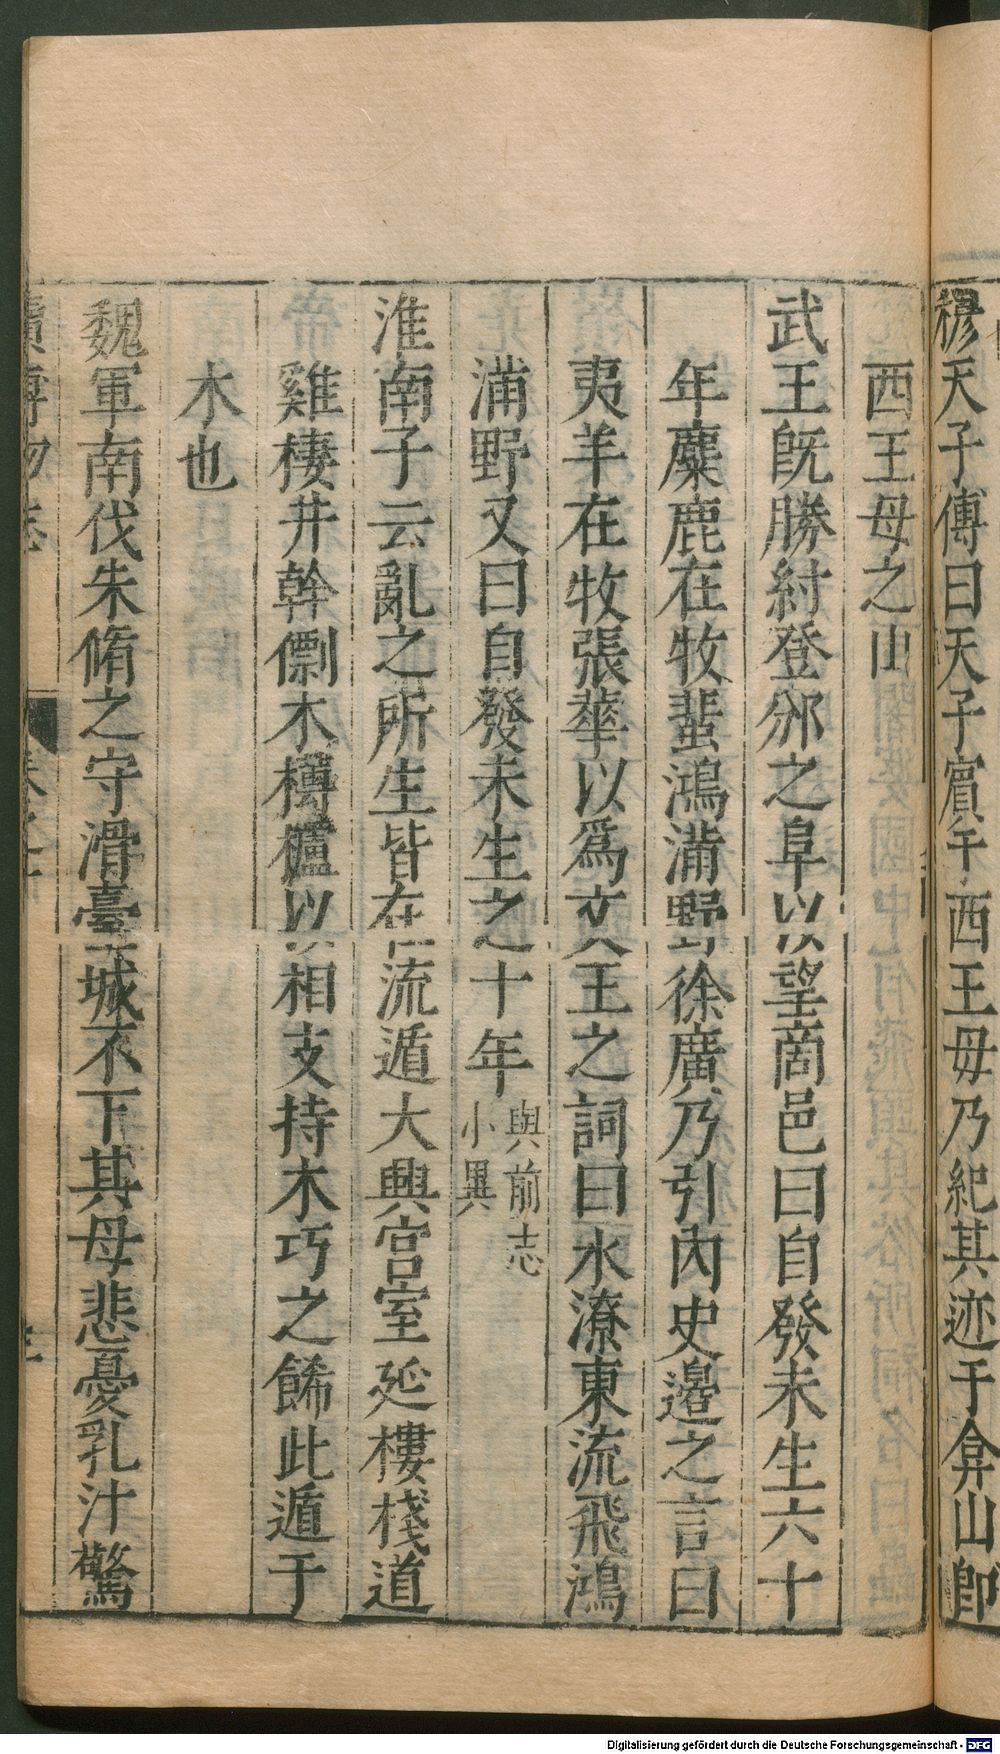 穆天子傳曰天子賓于西王母乃紀其迹于弇山卽
西王母之山
武王旣勝紂登邠之阜以望商邑曰自發未生六十
年麋鹿在牧蜚鴻滿野徐廣乃引內史邉之言曰
夷羊在牧張華以爲文王之詞曰水潦東流飛鴻
滿野又曰自發未生之十年與前志小異
淮南子云亂之所生皆在流遁大興宮室延樓棧道
雞棲井幹僄木欂櫨以相支持木巧之餙此遁于
木也
魏軍南伐朱脩之守滑臺城不下其母悲憂乳汁驚
續博物志
Digitalisierung gefördert durch die Deutsche Forschungsgemeinschaft - DFG